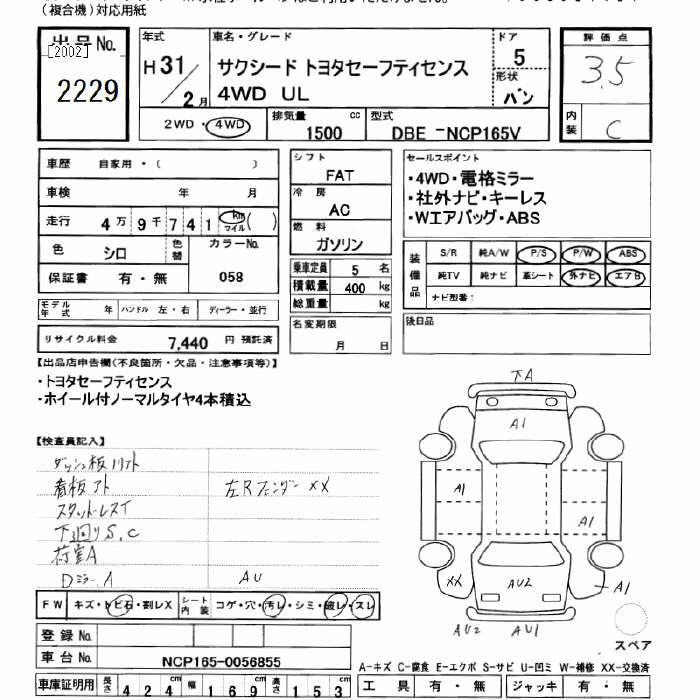 (複合機)対応用紙
出品No.
[2002]
2229
年式
H31/2月
車名・グレード
サクシード トヨタセーフティセンス
4WD UL
ドア
5
形状
バン
評価点
3.5
内装
C
2WD・4WD
排気量
1500 cc
型式
DBE-NCP165V
車歴 自家用・( )
車検 年 月
走行 4万9千741 km マイル ( )
色 シロ 色替 カラーNo. 058
保証書 有・無
モデル年式 年 ハンドル 左・右 ディーラー・並行
リサイクル料金 7,440 円 預託済
シフト
FAT
冷房
AC
燃料
ガソリン
乗車定員 5 名
積載量 400 kg
総重量 kg
名変期限
月 日
セールスポイント
・4WD・電格ミラー
・社外ナビ・キーレス
・Wエアバッグ・ABS
装備品
S/R 純A/W P/S P/W ABS
純TV 純ナビ 革シート 外ナビ エアB
ナビ型番:
後日品
【出品店申告欄(不良箇所・欠品・注意事項等)】
・トヨタセーフティセンス
・ホイール付ノーマルタイヤ4本積込
【検査員記入】
ダッシュ板リフト
看板アト 左Rフェンダー XX
スタッドレスイ
下回りS,C
荷室A
Dミラー A AU
FW キズ・トビ石・割レX シート内装 コゲ・穴・汚レ・シミ・破レ・スレ
登録No.
車台No. NCP165-0056855
車庫証明用 長さ 424cm 幅 169cm 高さ 153cm
下A
A1
A1
A1
XX
AU2
A1
AU2
AU1
スペア
A-キズ C-腐食 E-エクボ S-サビ U-凹ミ W-補修 XX-交換済
工具 有・無 ジャッキ 有・無